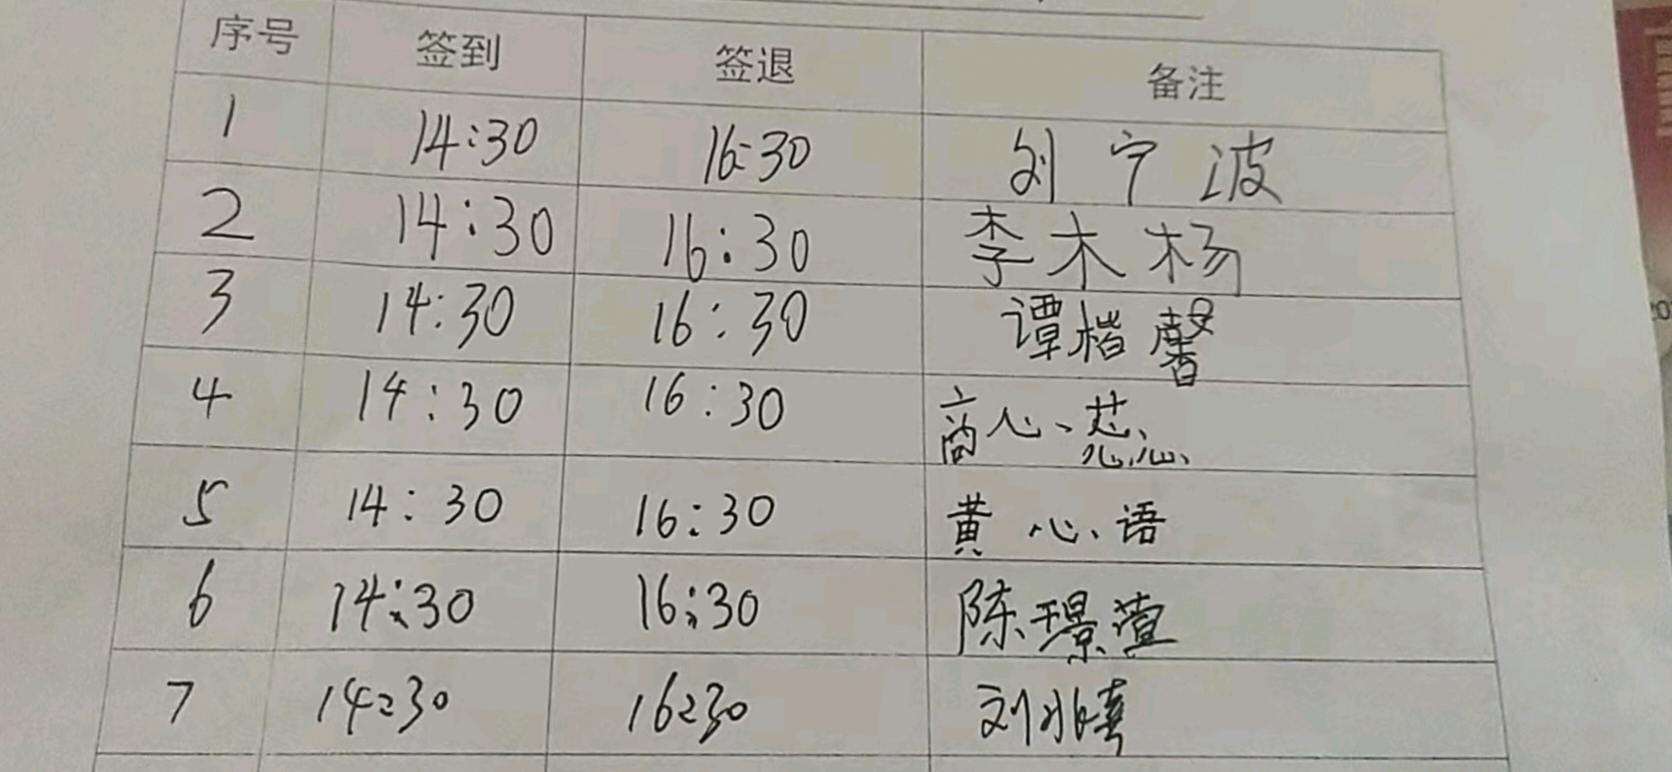 序号 签到 签退 备注
1 14:30 16:30 刘宁波
2 14:30 16:30 李木杨
3 14:30 16:30 谭楷馨
4 14:30 16:30 商心蕊
5 14:30 16:30 黄心语
6 14:30 16:30 陈璟萱
7 14:30 16:30 刘兆